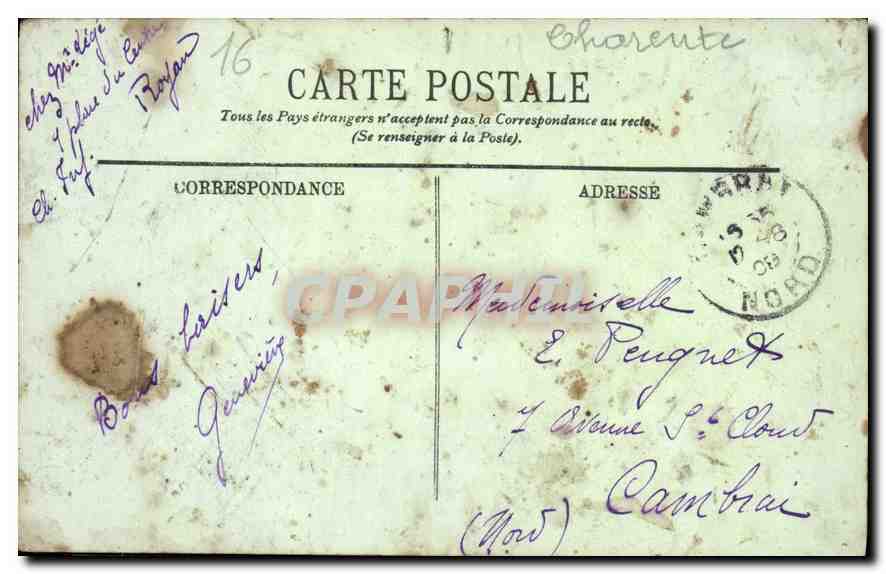 chez Mr Légé
7 place du Centre
Royan
Ch. Inf.
16
Charente
CARTE POSTALE
Tous les Pays étrangers n'acceptent pas la Correspondance au recto.
(Se renseigner à la Poste).
CORRESPONDANCE
ADRESSE
NORD
Bons baisers,
Geneviève
CPAPHIL
Mademoiselle
E. Peugnet
7 Avenue St Cloud
Cambrai
(Nord)